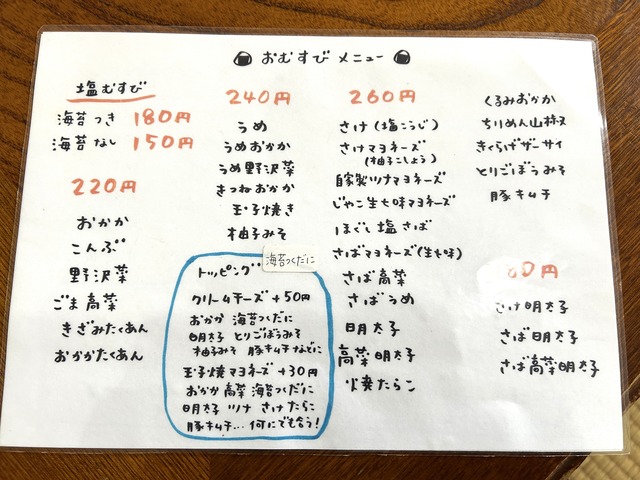 おむすび メニュー
塩むすび
海苔つき 180円
海苔なし 150円
220円
おかか
こんぶ
野沢菜
ごま高菜
きざみたくあん
おかかたくあん
240円
うめ
うめおかか
うめ野沢菜
きつねおかか
玉子焼き
柚子みそ
海苔つくだに
トッピング
クリームチーズ +50円
おかか 海苔つくだに
明太子 とりごぼうみそ
柚子みそ 豚キムチなどに
玉子焼マヨネーズ +30円
おかか 高菜 海苔つくだに
明太子 ツナ さけ たらこ
豚キムチ… 何にでも合う!
260円
さけ (塩こうじ)
さけマヨネーズ
(柚子こしょう)
自家製ツナマヨネーズ
じゃこ生七味マヨネーズ
ほぐし塩さば
さばマヨネーズ(生七味)
さば高菜
さばうめ
明太子
高菜明太子
火焼たらこ
くるみおかか
ちりめん山椒
きくらげザーサイ
とりごぼうみそ
豚キムチ
0円
さけ明太子
さば明太子
さば高菜明太子